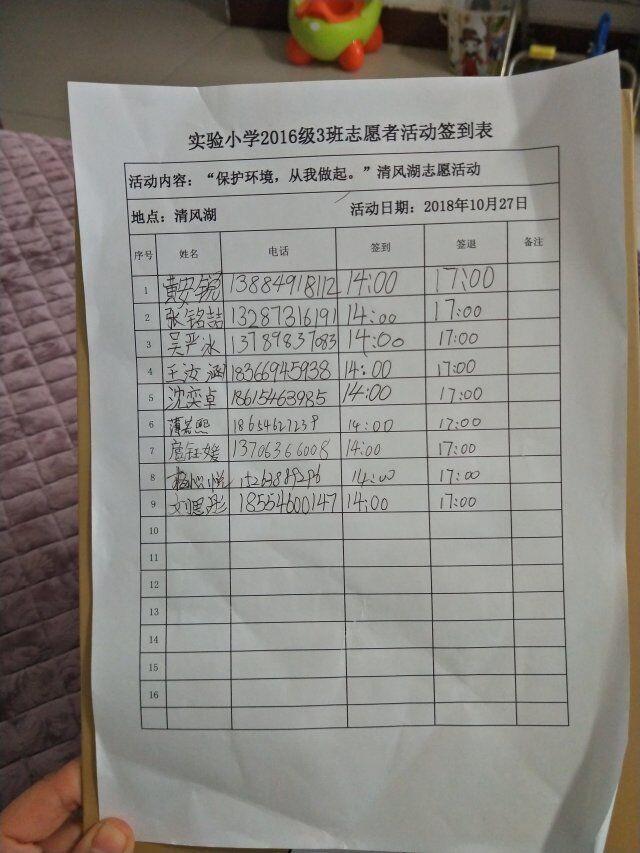 实验小学2016级3班志愿者活动签到表
活动内容：“保护环境，从我做起。”清风湖志愿活动
地点：清风湖 活动日期：2018年10月27日
序号 姓名 电话 签到 签退 备注
1 黄安锐 13884918112 14:00 17:00
2 张铭喆 13287316191 14:00 17:00
3 吴严冰 13789837083 14:00 17:00
4 王汝涵 18366945938 14:00 17:00
5 沈奕卓 18615463985 14:00 17:00
6 薄若熙 18654627239 14:00 17:00
7 扈钰媛 13706366008 14:00 17:00
8 14:00 17:00
9 刘思彤 18554600147 14:00 17:00
10
11
12
13
14
15
16